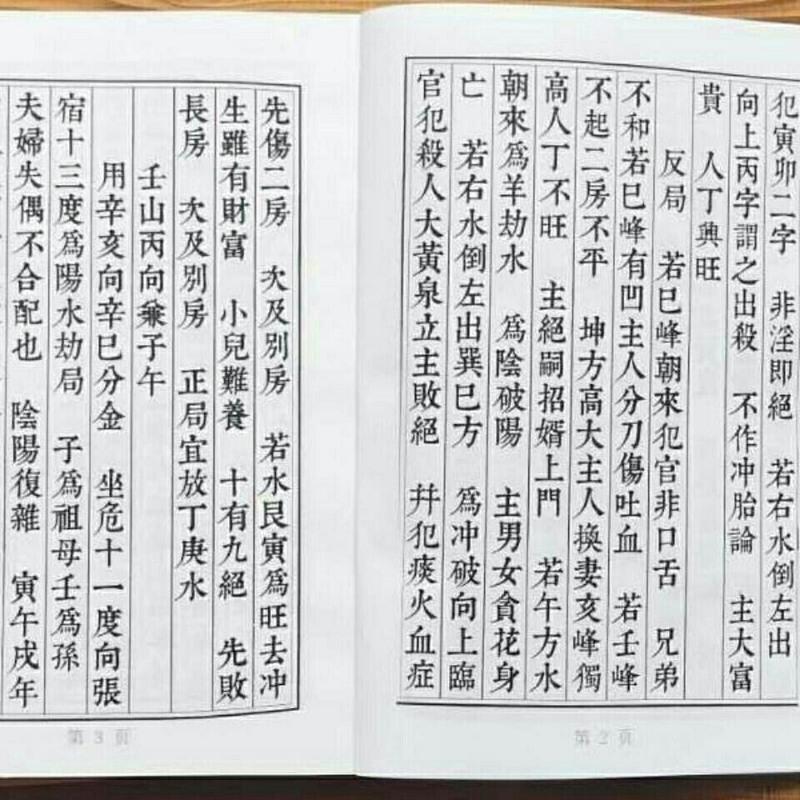 犯寅卯二字　非淫即絕　若右水倒左出
向上丙字謂之出殺　不作冲胎論　主大富
貴　人丁興旺
反局　若巳峰朝來犯官非口舌　兄弟
不和若巳峰有凹主人分刀傷吐血　若壬峰
不起二房不平　坤方高大主人換妻亥峰獨
高人丁不旺　主絕嗣招婿上門　若午方水
朝來爲羊劫水　爲陰破陽　主男女貪花身
亡　若右水倒左出巽巳方　爲冲破向上臨
官犯殺人大黃泉立主敗絕　幷犯痰火血症
第 2 頁
先傷二房　次及別房　若水艮寅爲旺去冲
生雖有財富　小兒難養　十有九絕　先敗
長房　次及別房　正局宜放丁庚水
壬山丙向兼子午
用辛亥向辛巳分金　坐危十一度向張
宿十三度爲陽水劫局　子爲祖母壬爲孫
夫婦失偶不合配也　陰陽復雜　寅午戌年
第 3 頁